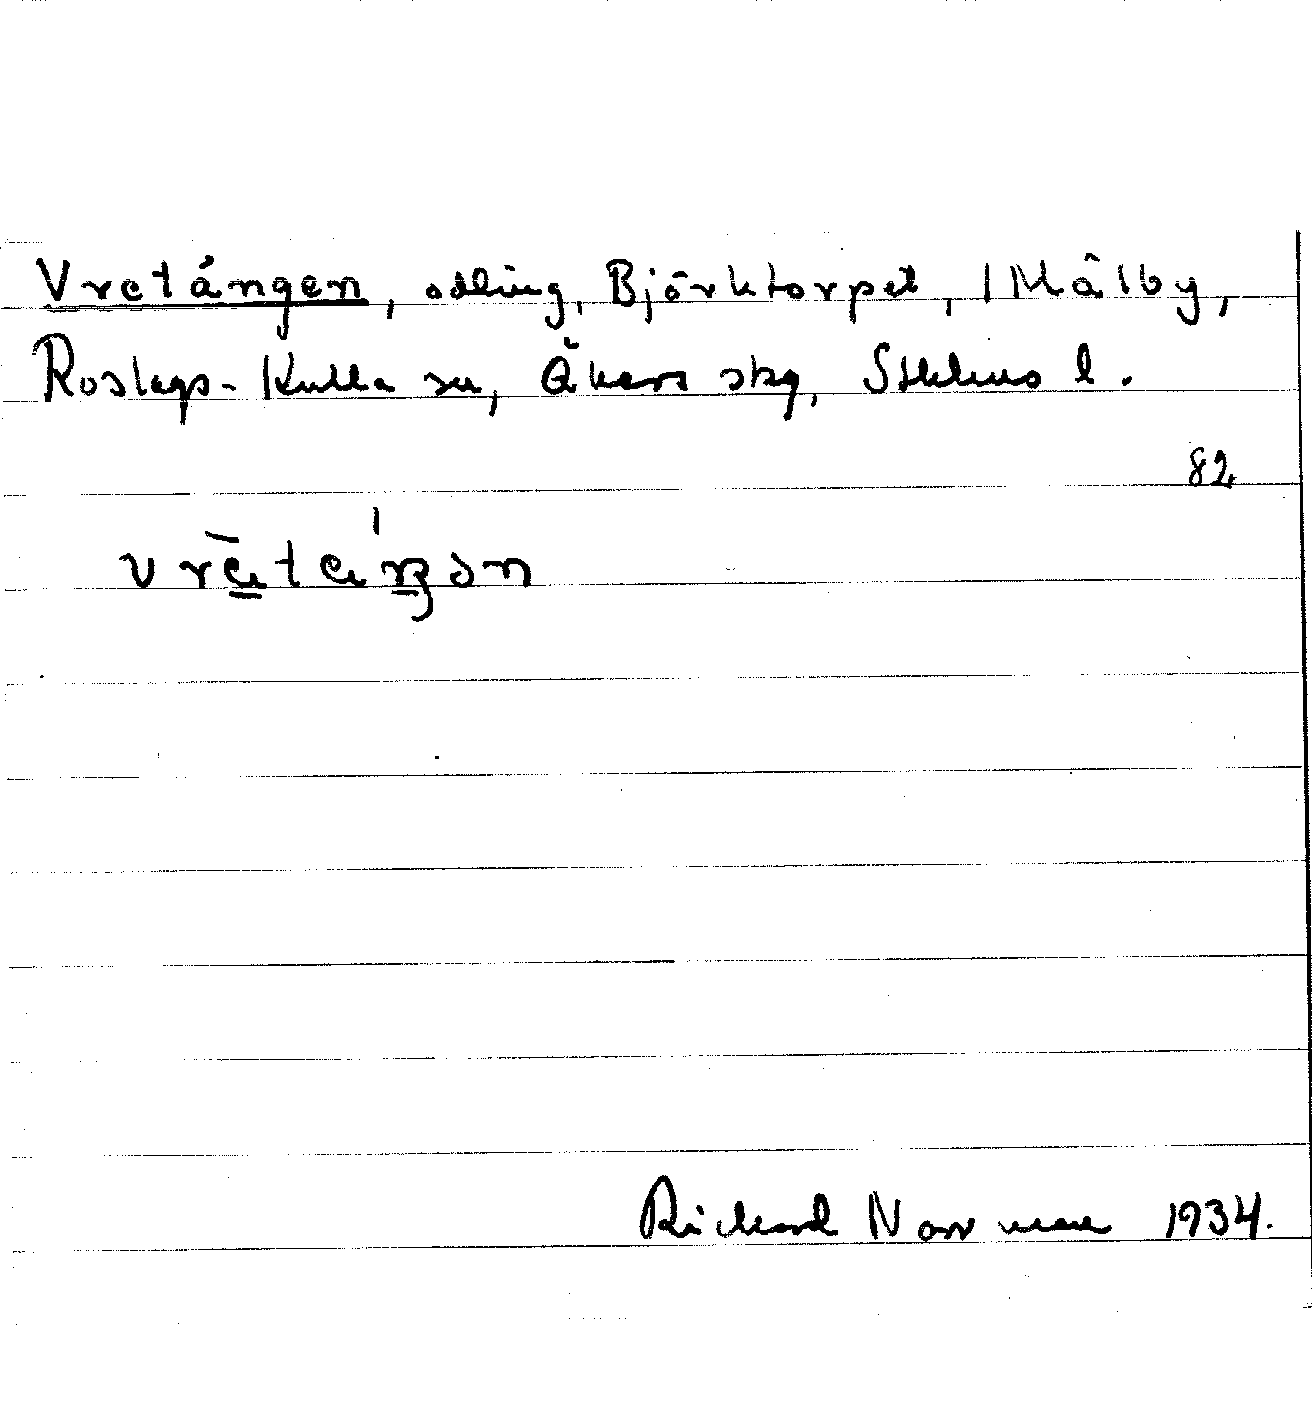 Vretängen, odling, Björktorpet, 1 Målby,
Roslags-Kulla sn, Åkers skg, Sthlms l.
82
vrètáŋən
Richard Norrman 1934.